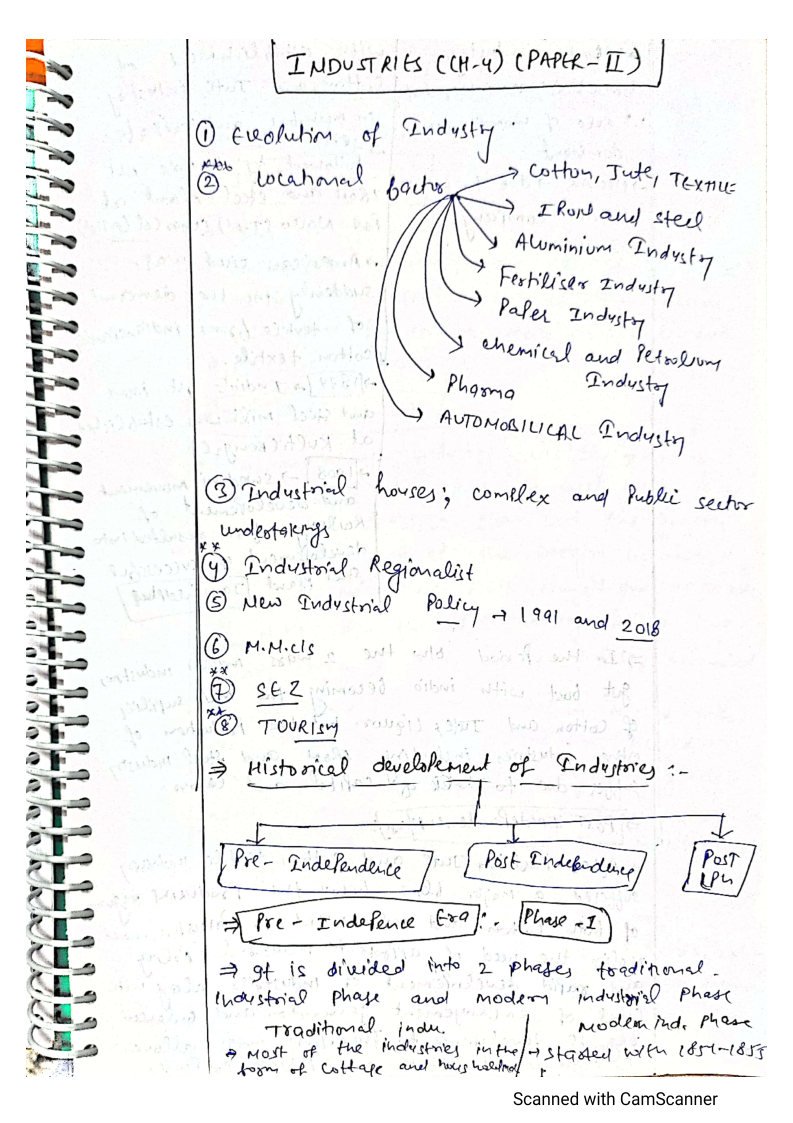 INDUSTRIES (CH-4) (PAPER-II)
① Evolution of Industry
② Locational factor
→ Cotton, Jute, TEXTILE
→ IRON and steel
→ Aluminium Industry
→ Fertiliser Industry
→ Paper Industry
→ chemical and Petroleum Industry
→ Pharma
→ AUTOMOBILICAL Industry
③ Industrial houses; complex and Public sector
undertakings
**
④ Industrial Regionalist
⑤ New Industrial Policy → 1991 and 2018
⑥ M.M.cls
**
⑦ SEZ
**
⑧ TOURISM
⇒ Historical developement of Industries :-
Pre-Independence
Post Independence
POST LPG
⇒ Pre-Indepence Era :- Phase-I
⇒ It is divided into 2 phases traditional.
Industrial Phase and modern industrial Phase
Traditional indu.
→ Most of the industries in the
form of cottage and households
Modern ind. Phase
→ started with 1854-1855
Scanned with CamScanner